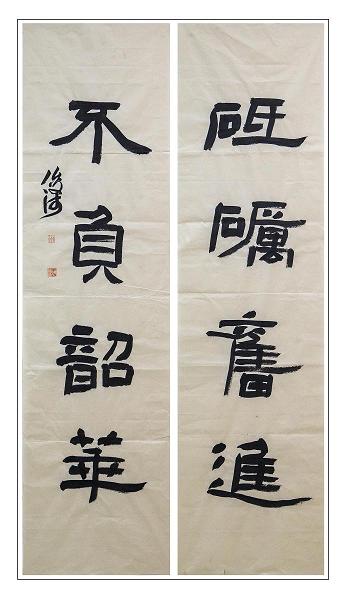 砥礪奮進
不負韶華